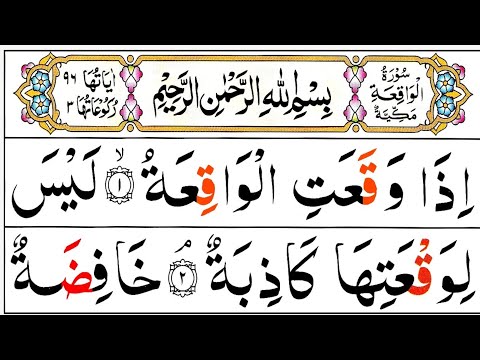 سُوْرَةُ
الْوَاقِعَةِ
مَكِّيَّةٌ
بِسْمِ اللهِ الرَّحْمٰنِ الرَّحِيْمِ
اٰيَاتُهَا ٩٦
رُكُوْعَاتُهَا ٣
اِذَا وَقَعَتِ الْوَاقِعَةُ ۙ﴿١﴾ لَيْسَ
لِوَقْعَتِهَا كَاذِبَةٌ ۘ﴿٢﴾ خَافِضَةٌ